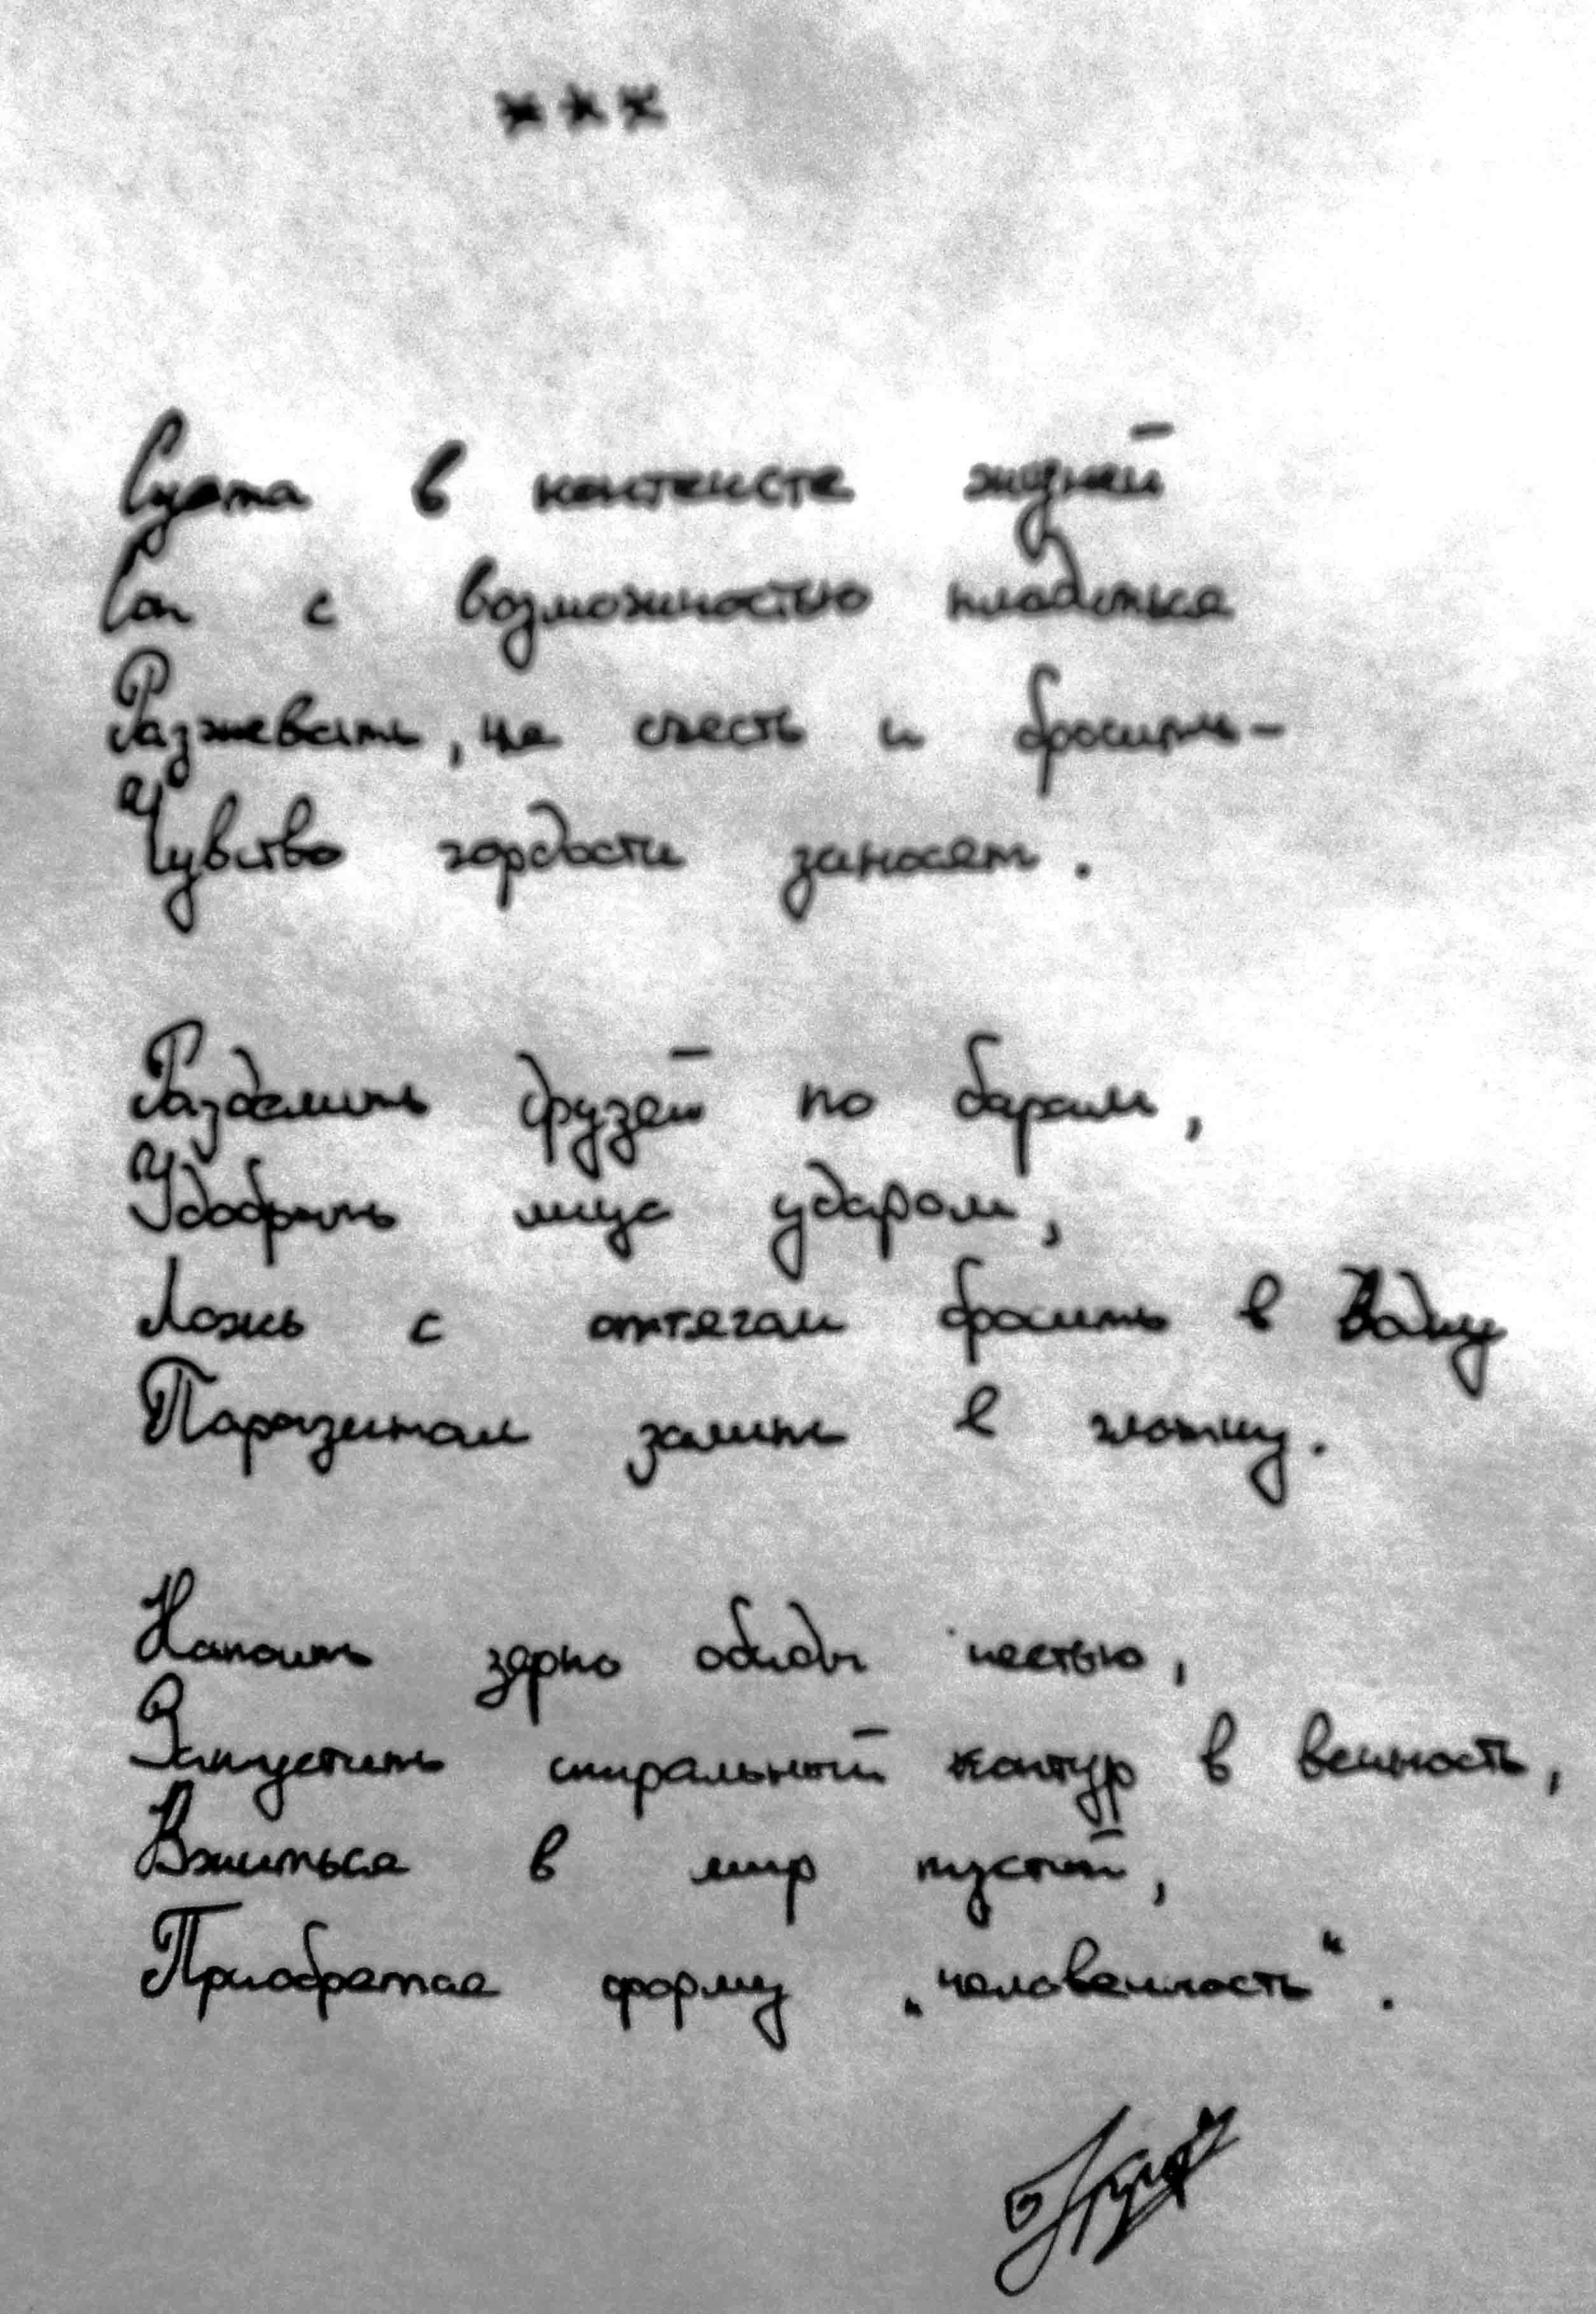 ***
Суета в контексте жизней
Сон с возможностью
Разжевать, не съесть и бросить -
Чувство гордости заносят.
Разделить друзей по барам,
Удобрить лица ударом,
Ложь с оттягом бросить в водку
Паразитам залить в глотку.
Напоить зерно обиды честью,
Запустить спиральный контур в вечность,
Вжиться в мир пустой,
Приобретая форму „человечность“.